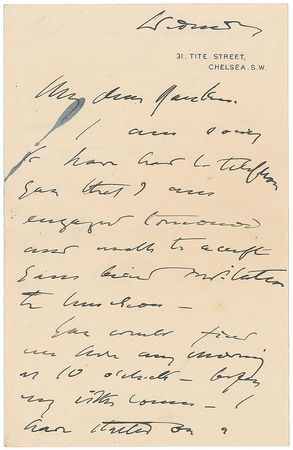 Wednesday
31, TITE STREET,
CHELSEA. S.W.
My dear
I am sorry
to have had to telephone
you that I am
engaged tomorrow
and unable to accept
your kind invitation
to luncheon –
You would find
me here any morning
at 10 o'clock – before
my sitter comes – I
have started on a